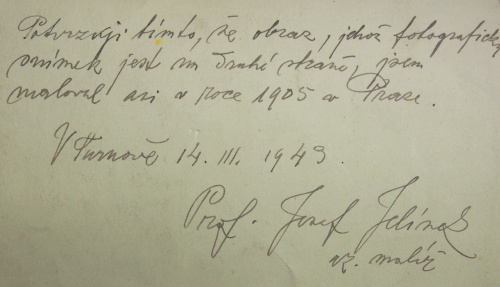 Potvrzuji tímto, že obraz, jehož fotografický
snímek jest na druhé straně, jsem
maloval asi v roce 1905 v Praze.
V Turnově 14. III. 1943.
Prof. Josef Jelínek
ak. malíř